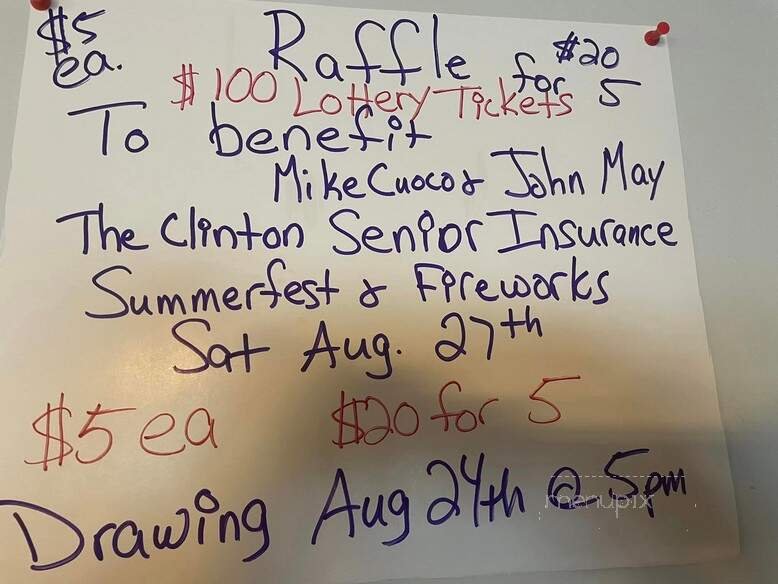 $5 ea.
Raffle
for $20 5
$100 Lottery Tickets
To benefit
Mike Cuoco & John May
The Clinton Senior Insurance
Summerfest & Fireworks
Sat Aug. 27th
$5 ea $20 for 5
Drawing Aug 24th @ 5pm
menupix